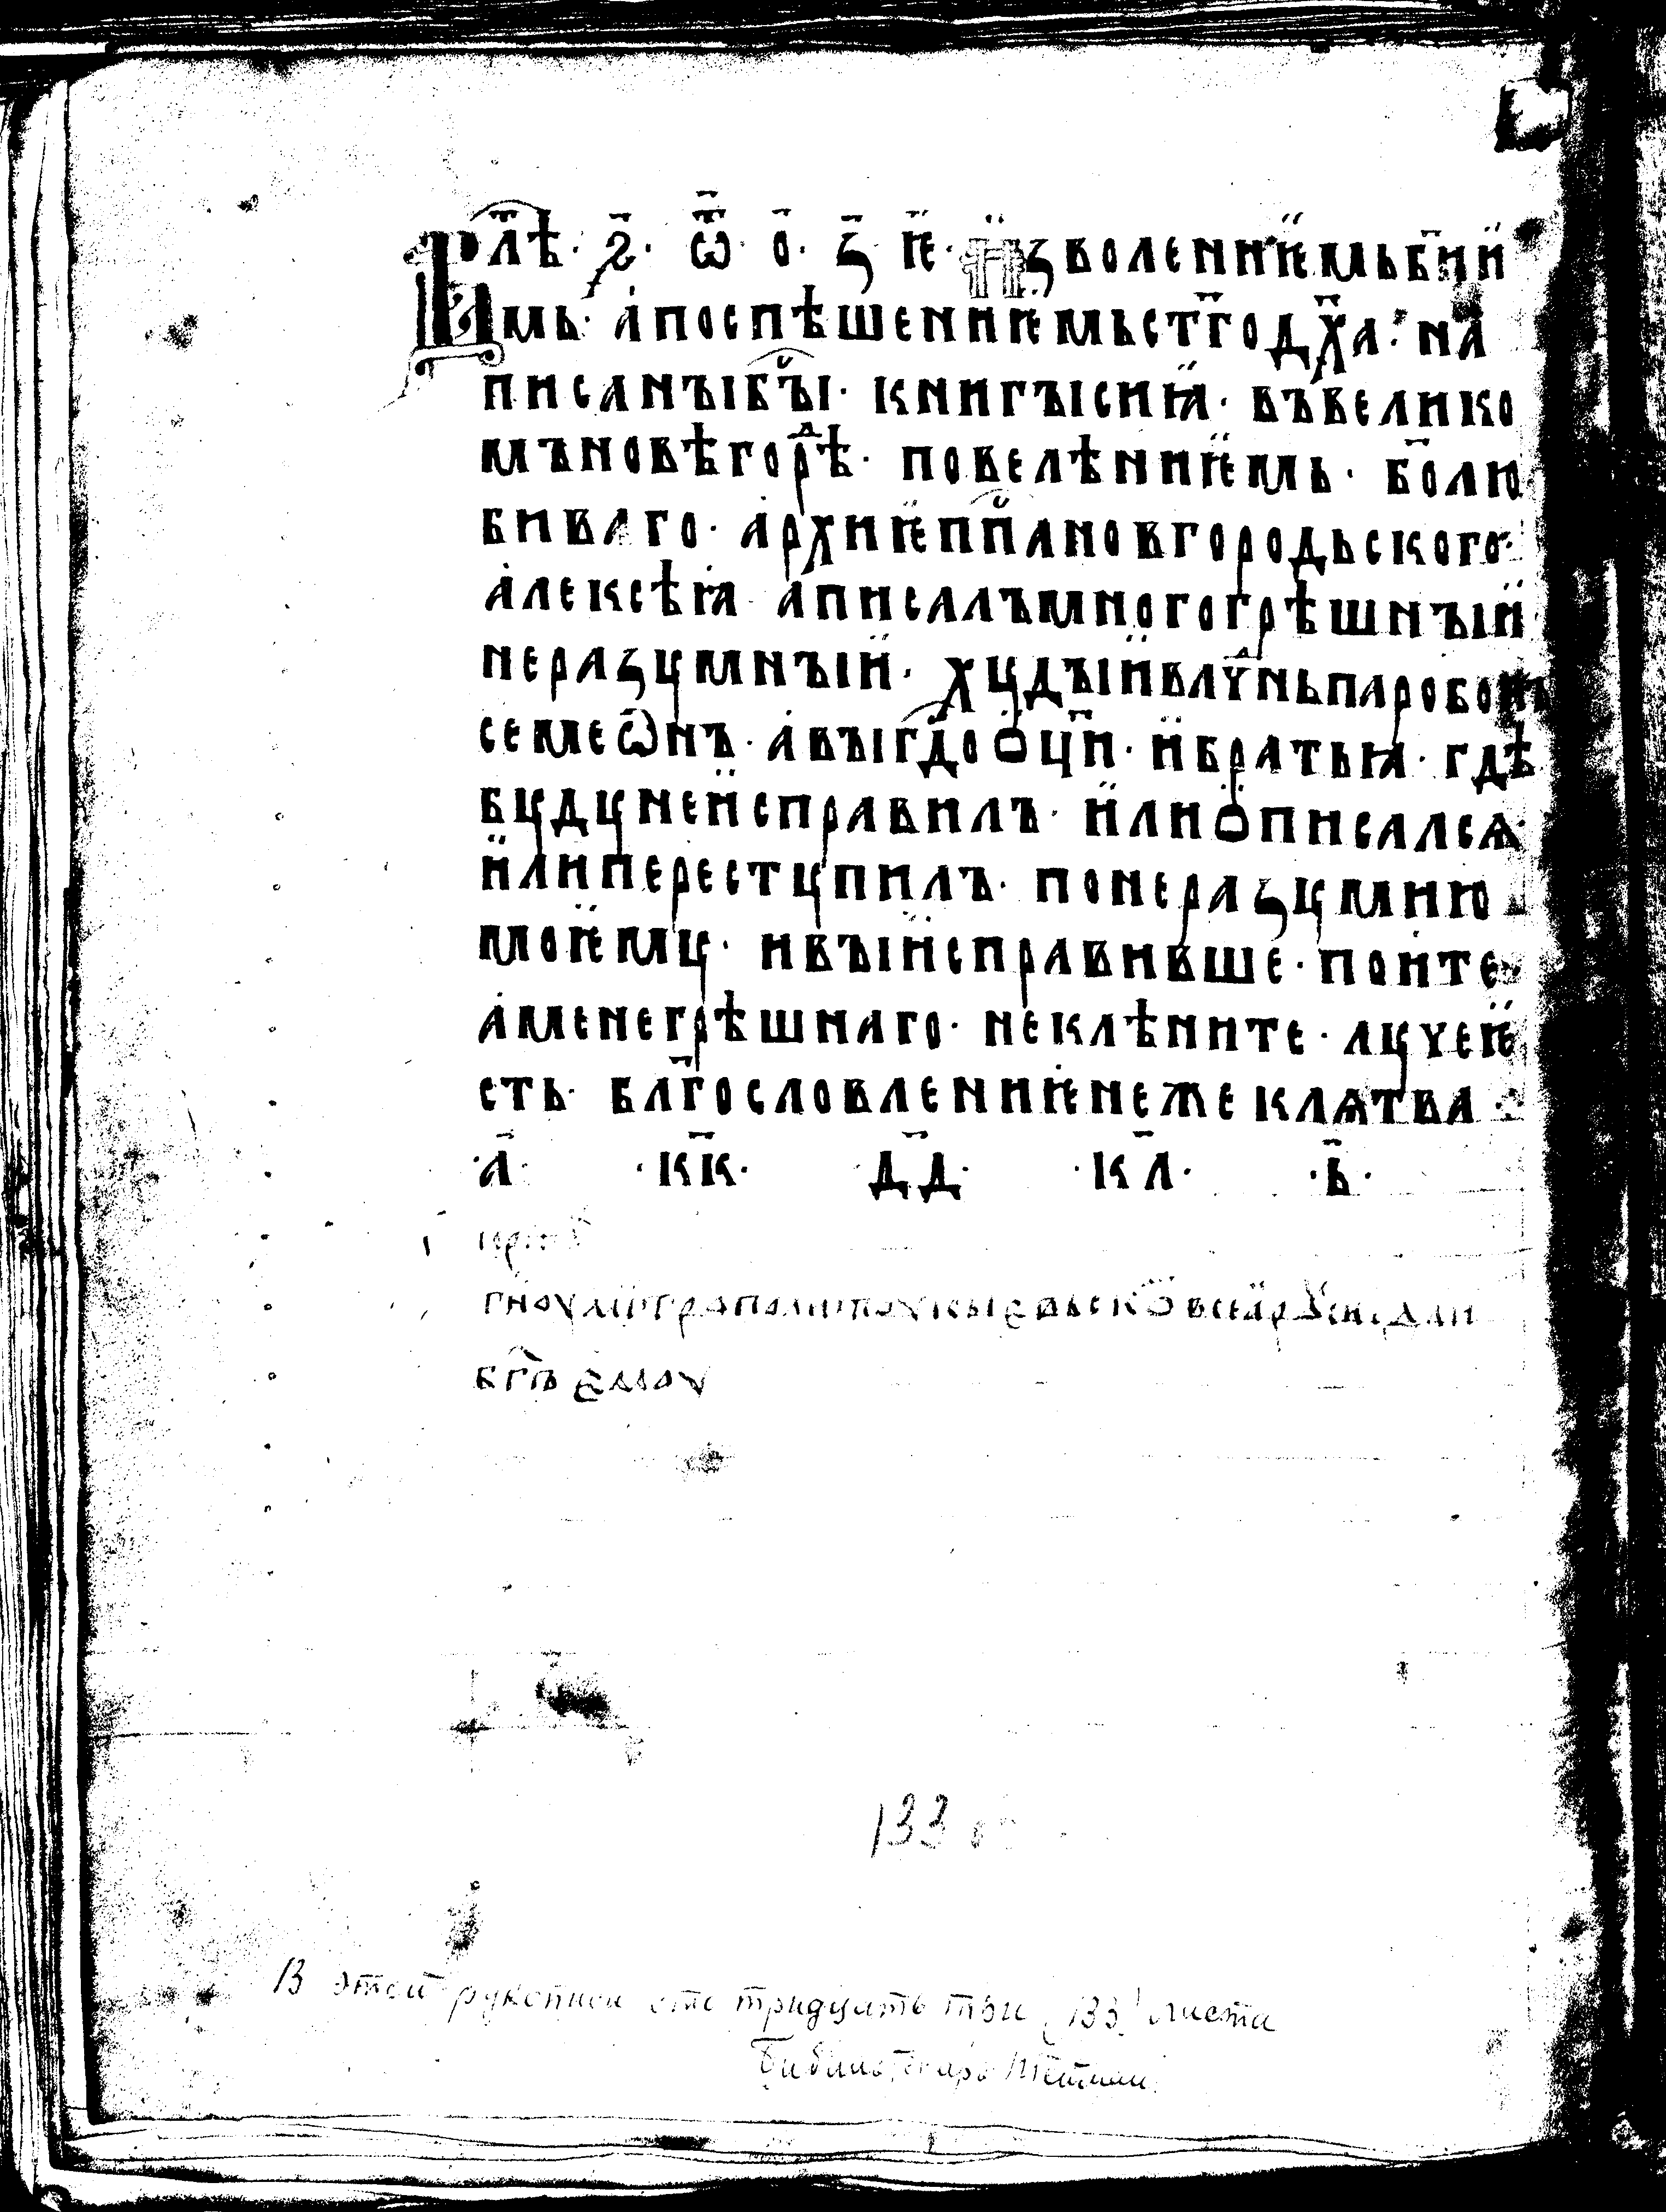 В лѣ҃т · ҂ѕ҃ · ѿ҃ · о҃ · з҃ · ѥ · Ӥзволениѥмь б҃ий
имь · а поспѣшениѥмь ст҃го дх҃а · на
писаны бы̑ · книгы сиꙗ · въ велико
мъ новѣгорⷣѣ · повелѣниѥмь · бо҃лю
биваго · архиѥпп҃а новгородьского ·
алексѣꙗ а писалъ многогрѣшныӥ
неразумныӥ · худыӥ влⷣчнь паробокъ
семеѡнъ · а вы гдⷭ҇о ѻц҃и · ӥ братьꙗ · гдѣ
буду не исправилъ · ӥли ѻписалсѧ ·
ӥли переступилъ · по неразумию
моѥму · и вы ӥсправивше · поите
а мене грѣшнаго · не клѣните · луче ѥ
сть · блг҃ословлениѥ неже клѧтва
· а҃ · · кк҃ · · дд҃ · · кл҃ · · в҃ ·
133
В этой рукописи сто тридцать три (133) листа
Библиотекарь